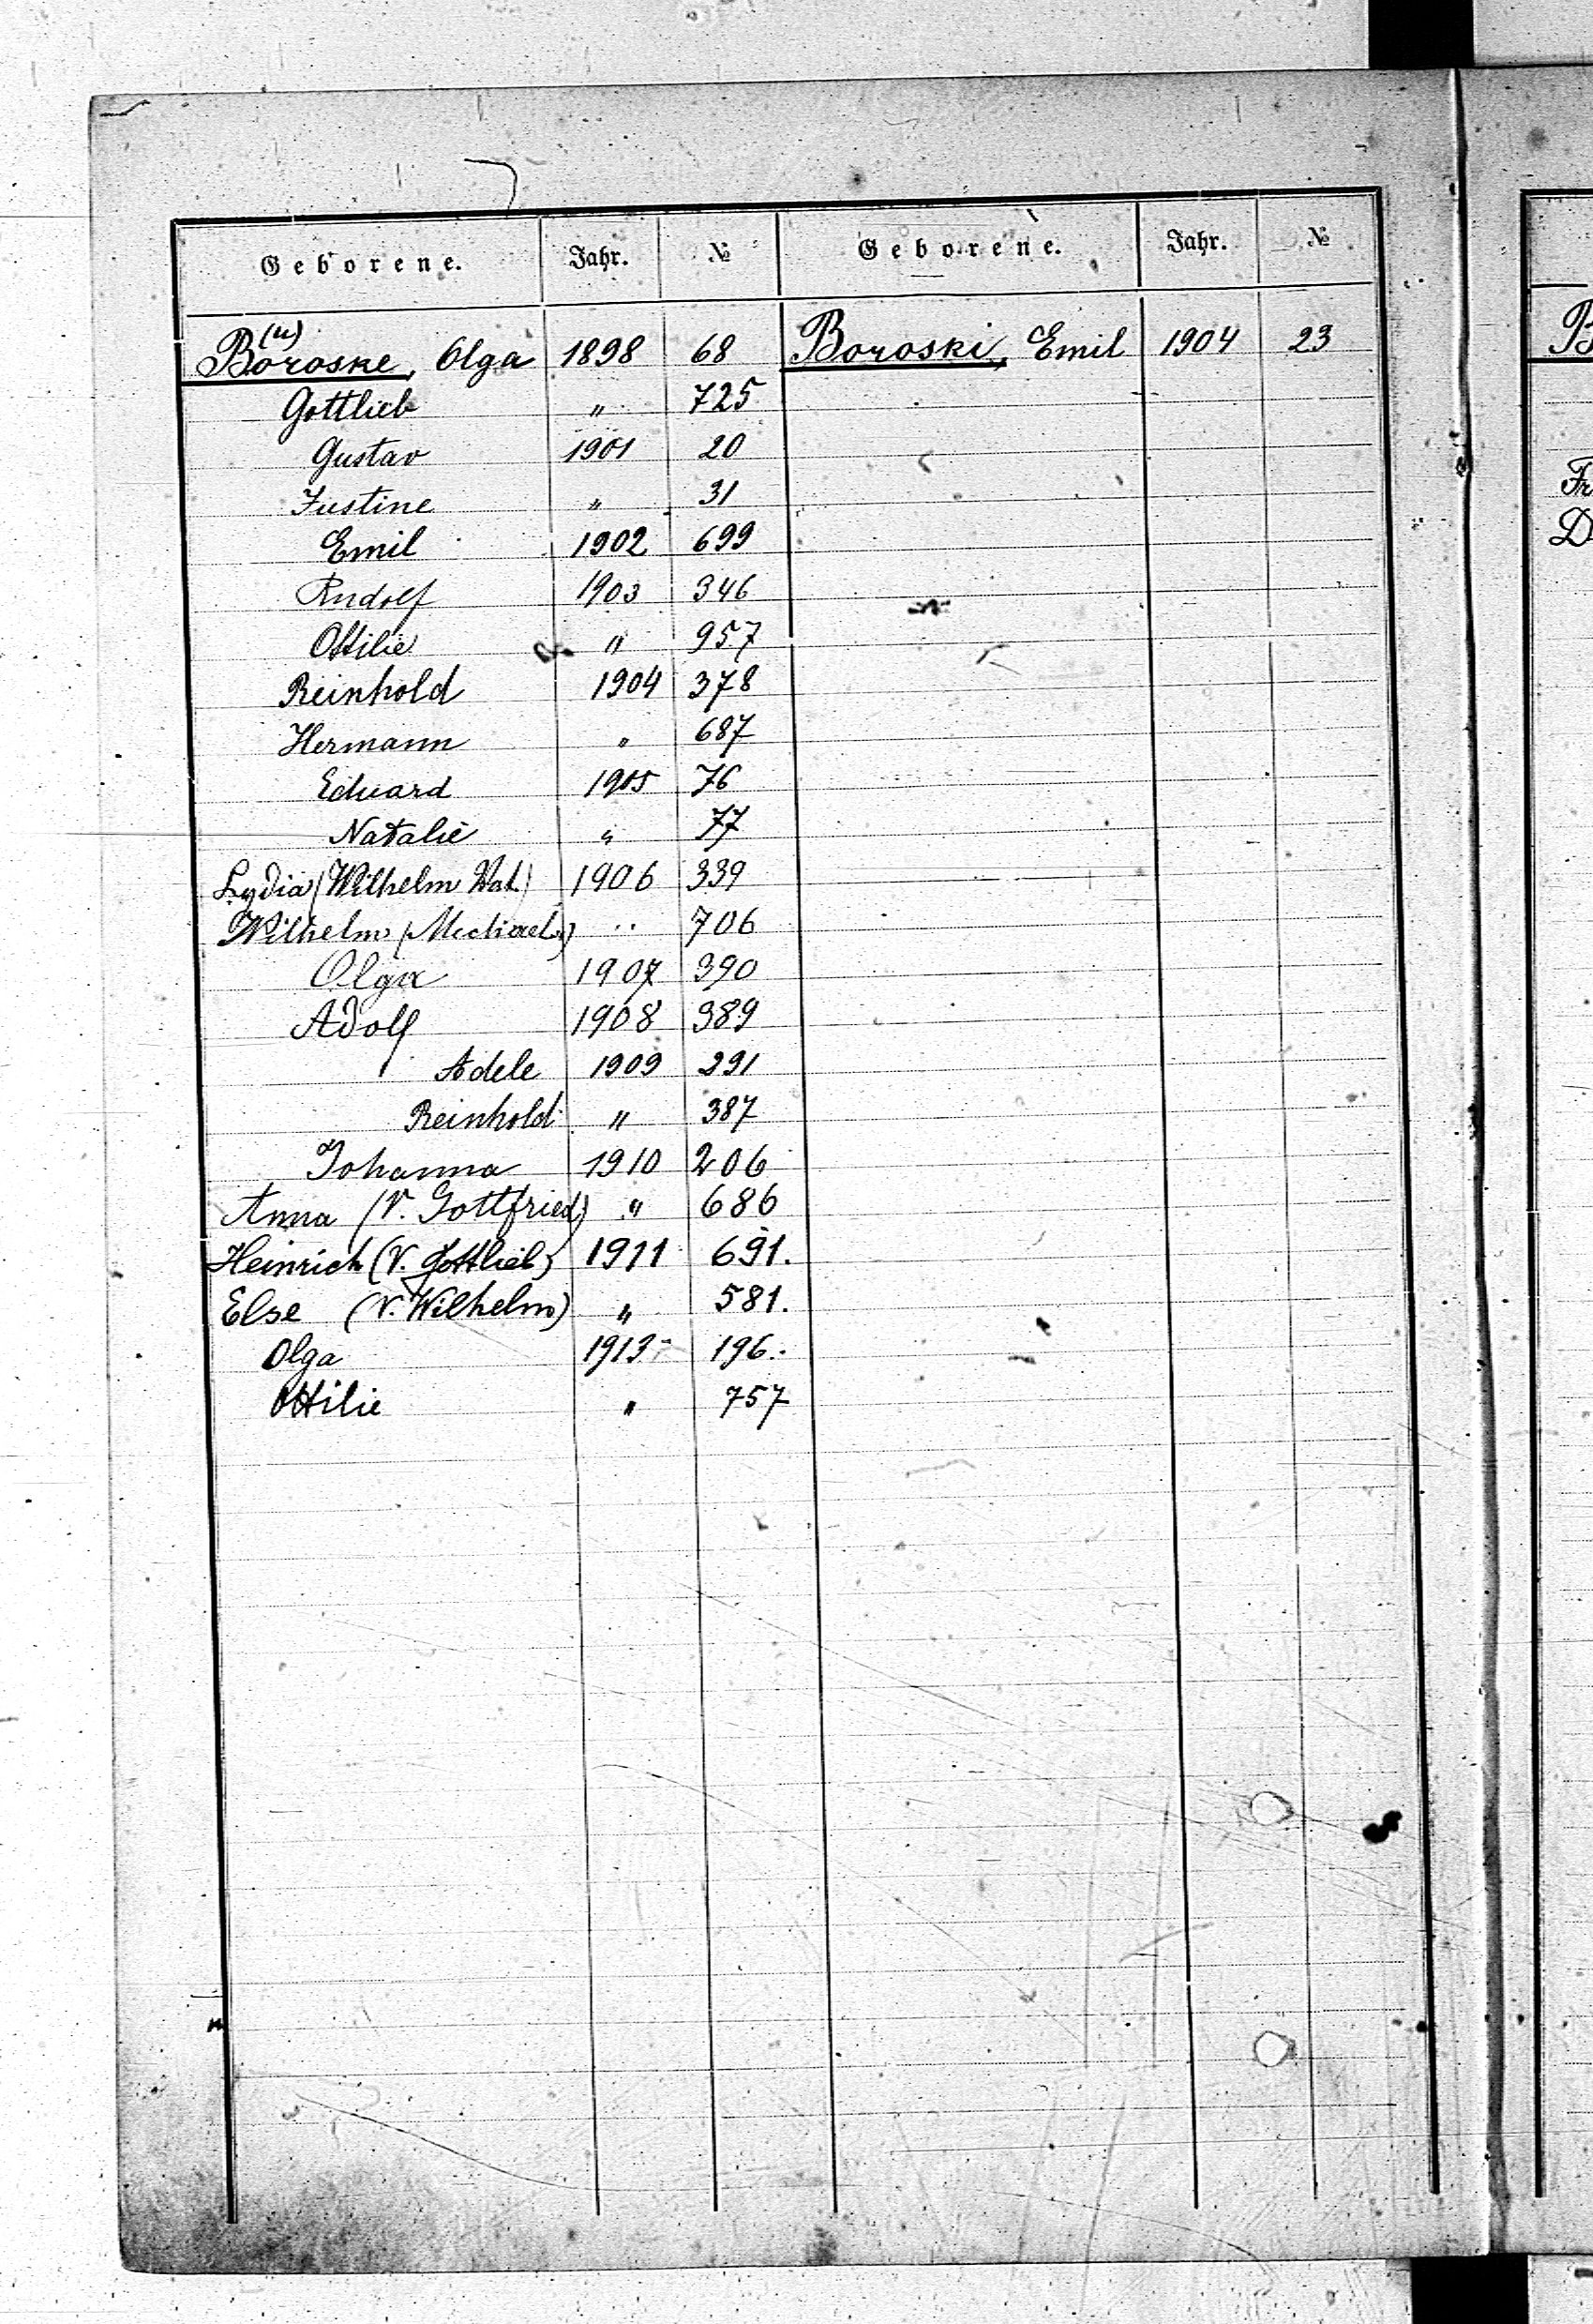 Geborene. Jahr. № Geborene. Jahr. №
(u)
Boroske, Olga 1898 68 Boroski, Emil 1904 23
Gottlieb " 725
Gustav 1901 20
Justine " 31
Emil 1902 699
Rudolf 1903 346
Ottilie " 957
Reinhold 1904 378
Hermann " 687
Eduard 1905 76
Natalie " 77
Lydia (Wilhelm Vat.) 1906 339
Wilhelm (Mechael) " 706
Olga 1907 390
Adolf 1908 389
Adele 1909 291
Reinhold " 387
Johanna 1910 206
Anna (V. Gottfried) " 686
Heinrich (V. Gottlieb) 1911 691.
Else (V. Wilhelm) " 581.
Olga 1913 196.
Ottilie " 757
B
Fr
D